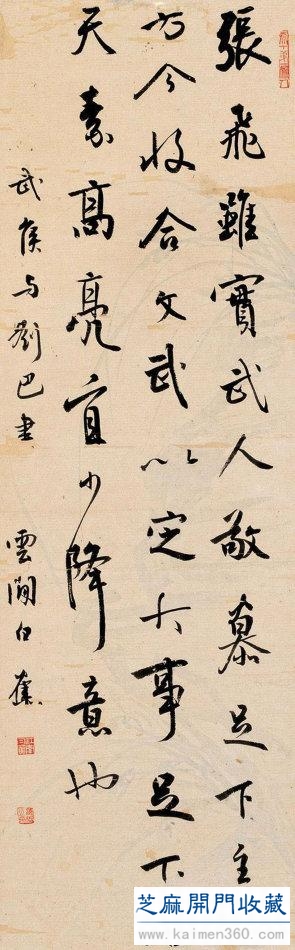 張飛雖實武人敬慕足下主
公今收合文武以定大事足下
天素高亮宜少降意也
武侯与劉巴書
雲間白蕉
芝麻開門收藏
www.kaimen360.com